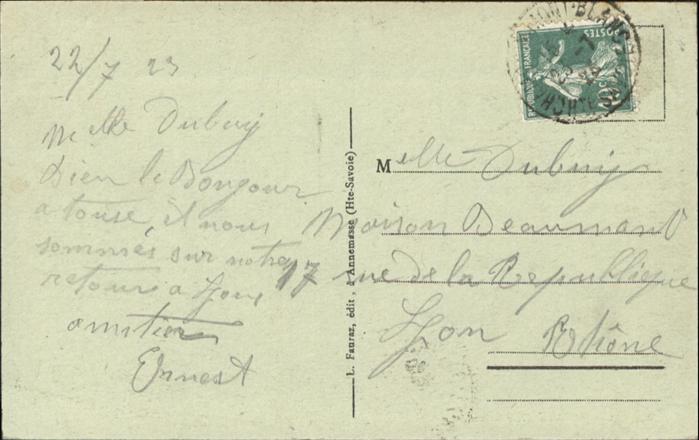 22/7 23
Melle Dubuy
Bien le Bongour
a touse, et nous
sommes sur notre
retour a Lyon
amitier
Ernest
L. Fauraz, édit, à Annemasse (Hte-Savoie)
MONT-BLANC
POSTES
FRANÇAISE
10c
Melle Dubuy
Maison Beaumant
17 rue de la Republique
Lyon Rhône